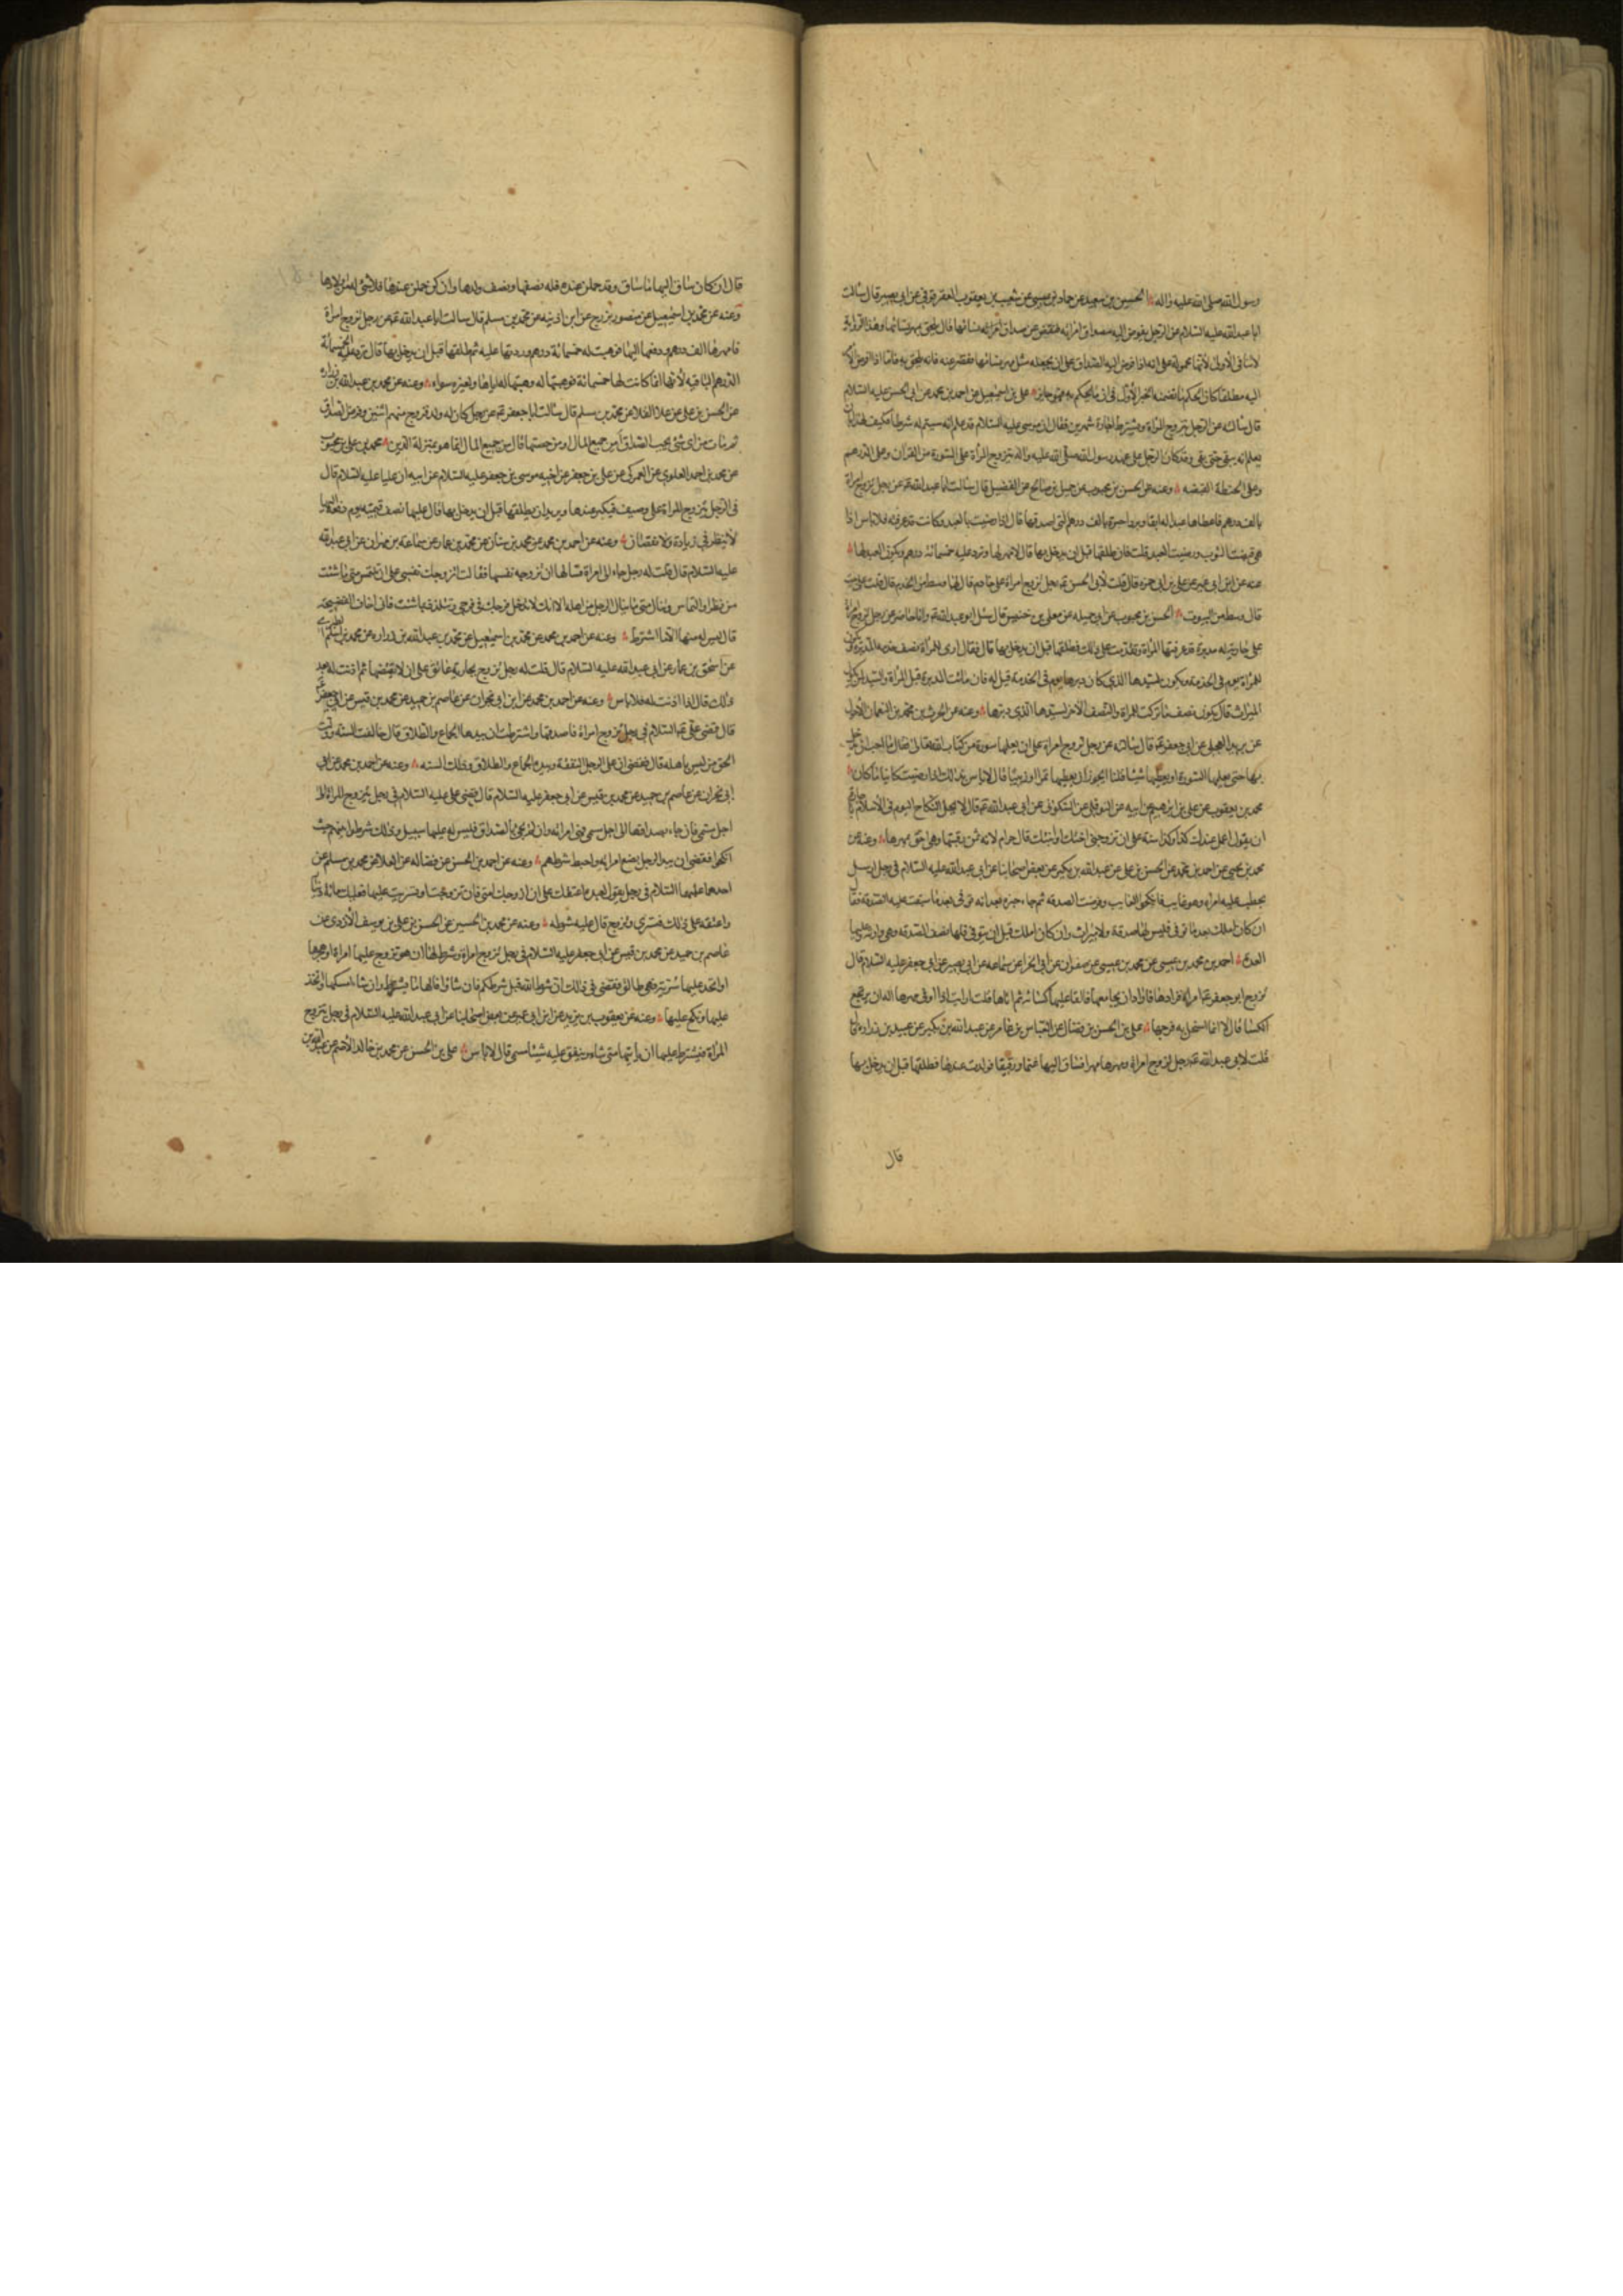 رسول الله صلى الله عليه واله الحسين بن سعيد عن حماد بن عيسى عن شعيب بن يعقوب العقرقوفي عن ابي بصير قال سالت
ابا عبد الله عليه السلام عن الرجل يفوض اليه صداق امراته فنقص عن صداق نسائها قال يلحق بمهر نسائها وهذا
لا ينافي الاولى لأنها محمولة على انه اذا فوض اليه الصداق على ان يجعله مثل مهر نسائها فقصر عنه فانه يلحق به فاما اذا فوض
اليه مطلقا كان الحكم ما تضمنه الخبر الأول في ان ما يحكم به فهو جايز علي بن اسمعيل عن احمد بن محمد عن ابي الحسن عليه السلام
قال سالته عن الرجل يتزوج المرأة ويشترط اجارة شهرين فقال ان موسى عليه السلام قد علم انه سيتم له شرطه فكيف لهذا بان
يعلم انه يبقى حتى يفى وقد كان الرجل على عهد رسول الله صلى الله عليه واله يتزوج المرأة على السورة من القران وعلى الدرهم
وعلى الحنطة القبضه وعنه عن الحسن بن محبوب عن جميل بن صالح عن الفضيل قال سالت ابا عبد الله عن رجل تزوج امراة
بالف درهم فاعطاها عبدا له ابقا وبردا حبرة بالف درهم التي اصدقها قال اذا رضيت بالعبد وكانت قد عرفته فلا باس اذا
هي قبضت الثوب ورضيت العبد قلت فان طلقها قبل ان يدخل بها قال لا مهر لها وترد عليه خمسمائة درهم ويكون العبد لها
عنه عن ابن ابي عمير عن علي بن ابي حمزه قال قلت لأبي الحسن رجل تزوج امراة على خادم قال لها وسط من الخدم قال قلت على بيت
قال وسط من البيوت الحسن بن محبوب عن ابي جميله عن معلى بن خنيس قال سئل ابو عبد الله وانا حاضر عن رجل تزوج امراة
على جارية له مدبرة قد عرفتها المرأة وتقدمت على ذلك فطلقها قبل ان يدخل بها قال فقال ارى للمرأة نصف خدمة المدبرة يكون
للمرأة يوم في الخدمة ويكون لسيدها الذي كان دبرها يوم في الخدمة قيل له فان ماتت المدبرة قبل المرأة والسيد لمن يكون
الميراث قال يكون نصف ما تركت للمراة والنصف الآخر لسيدها الذي دبرها وعنه عن الحرث بن محمد بن النعمان الأحول
عن بريد العجلي عن ابي جعفر قال سالته عن رجل تزوج امراة على ان يعلمها سورة من كتاب الله تعالى فقال ما احب ان يدخل
بها حتى يعلمها السورة او يعطيها شيئا قلنا ايجوز ان يعطيها تمرا او زبيبا قال لا باس بذلك اذا رضيت كائنا ما كان
محمد بن يعقوب عن علي بن ابرهيم عن ابيه عن النوفلي عن السكوني عن ابي عبد الله قال لا يحل النكاح اليوم في الأسلام باجارة
ان يقول اعمل عندك كذا وكذا سنة على ان تزوجني اختك او ابنتك قال حرام لانه ثمن رقبتها وهي احق بمهرها وعنه عن
محمد بن يحيى عن احمد بن محمد عن الحسن بن علي عن عبد الله بن بكير عن بعض اصحابنا عن ابي عبد الله عليه السلام في رجل ارسل
يخطب عليه امراه وهو غايب فانكحوا الغايب وفرضت الصدقه ثم جاء خبره بعد انه توفي بعد ما سيقت عليه الصدقه فقال
ان كان املك بعد ما توفي فليس لها صدقة ولا ميراث وان كان املك قبل ان يتوفى فلها نصف الصدقه وهي وارثه وعليها
العدة احمد بن محمد بن عيسى عن محمد بن عيسى عن صفوان عن ابي الخرا عن سماعه عن ابي بصير عن ابي جعفر عليه السلام قال
تزوج ابو جعفر امراة فزارها فاراد ان يجامعها فالقا عليها كسائه ثم اتاها قلت ارايت اذا اوفى مهرها اله ان يرتجع
الكسا قال لا انما استحل به فرجها علي بن الحسن بن فضال عن العباس بن عامر عن عبد الله بن بكير عن عبيد بن زرارة قال
قلت لأبي عبد الله رجل تزوج امراة ومهرها مهرا فساق اليها غنما ورقيقا فولدت عندها فطلقها قبل ان يدخل بها
قال
قال ان كان ساق اليها ما ساق وقد حملن عنده فله نصفها ونصف ولدها وان كن حملن عندها فلا شئ له من الاولاد
وعنه عن محمد بن اسمعيل عن منصور بن بزرج عن ابن اذينه عن محمد بن مسلم قال سالت ابا عبد الله عن رجل تزوج امراة
فامهرها الف درهم ودفعها اليها فوهبت له خمسمائة درهم وردتها عليه ثم طلقها قبل ان يدخل بها قال ترد عليه الخمسمائة
الدرهم الباقيه لأنها انما كانت لها خمسمائة فوهبتها له وهبتها له اياها ولغيره سواء وعنه عن محمد بن عبد الله بن زرارة
عن الحسن بن علي عن علا القلا عن محمد بن مسلم قال سالت ابا جعفر عن رجل كان له ولد فزوج منهم اثنين وفرض الصداق
ثم مات من اي شئ يحسب الصداق أمن جميع المال او من حصتهما قال من جميع المال انما هو بمنزلة الدين محمد بن علي بن محبوب
عن محمد بن احمد العلوي عن العمركي عن علي بن جعفر عن اخيه موسى بن جعفر عليه السلام عن ابيه ان عليا عليه السلام قال
في الرجل يتزوج المراة على وصيف فيكبر عندها ويريد ان يطلقها قبل ان يدخل بها قال عليها نصف قيمته يوم دفعه اليها
لا ينظر في زيادة ولا نقصان وعنه عن احمد بن محمد عن محمد بن سنان عن محمد بن عمار عن سماعة بن مهران عن ابي عبد الله
عليه السلام قال قلت له رجل جاء الى امراة فسالها ان تزوجه نفسها فقالت ازوجك نفسي على ان تلتمس مني ما شئت
من نظر او التماس وتنال مني ما ينال الرجل من اهله الا انك لا تدخل فرجك في فرجي وتلذذ بما شئت فاني اخاف الفضيحة
قال ليس له منها الا ما اشترط وعنه عن احمد بن محمد عن محمد بن اسمعيل عن محمد بن عبد الله بن زراره عن محمد بن اسلم الطبري
عن اسحق بن عمار عن ابي عبد الله عليه السلام قال قلت له رجل تزوج بجارية عاتق على ان لا يقتضها ثم اذنت له بعد
ذلك قال اذا اذنت له فلا باس وعنه عن احمد بن محمد عن ابن ابي نجران عن عاصم بن حميد عن محمد بن قيس عن ابي جعفر
قال قضى علي عليه السلام في رجل تزوج امراة فاصدقها واشترطت ان بيدها الجماع والطلاق قال خالفت السنة وولت
الحق من ليس باهله قال فقضى ان على الرجل النفقة وبيده الجماع والطلاق وذلك السنه وعنه عن احمد بن محمد عن ابن
ابي نجران عن عاصم بن حميد عن محمد بن قيس عن ابي جعفر عليه السلام قال قضى علي عليه السلام في رجل يتزوج المراة الى
اجل مسمى فان جاء بصداقها الى اجل مسمى فهي امراته وان لم يجئ بالصداق فليس له عليها سبيل وذلك شرطوا بينهم حيث
انكحوا فقضى ان بيد الرجل بضع امراته واحبط شرطهم وعنه عن احمد بن الحسن عن فضاله عن العلا عن محمد بن مسلم عن
احدهما عليهما السلام في رجل يقول لعبده اعتقك على ان ازوجك امتي فان تزوجت او تسريت عليها فعليك مائة دينار
واعتقه على ذلك فتسرى وتزوج قال عليه شرطه وعنه عن محمد بن الحسين عن الحسن بن علي بن يوسف الأزدي عن
عاصم بن حميد عن محمد بن قيس عن ابي جعفر عليه السلام في رجل تزوج امراة وشرط لها ان هو تزوج عليها امراة او هجرها
او اتخذ عليها سرية فهي طالق فقضى في ذلك ان شرط الله قبل شرطكم فان شاء وفا لها بما يشترط وان شاء امسكها واتخذ
عليها ونكح عليها وعنه عن يعقوب بن يزيد عن ابن ابي عمير عن بعض اصحابنا عن ابي عبد الله عليه السلام في رجل يتزوج
المرأة فيشترط عليها ان ياتيها متى شاء وينفق عليه شيئا مسمى قال لا باس علي بن الحسن عن محمد بن خالد الأصم عن عبد الله بن